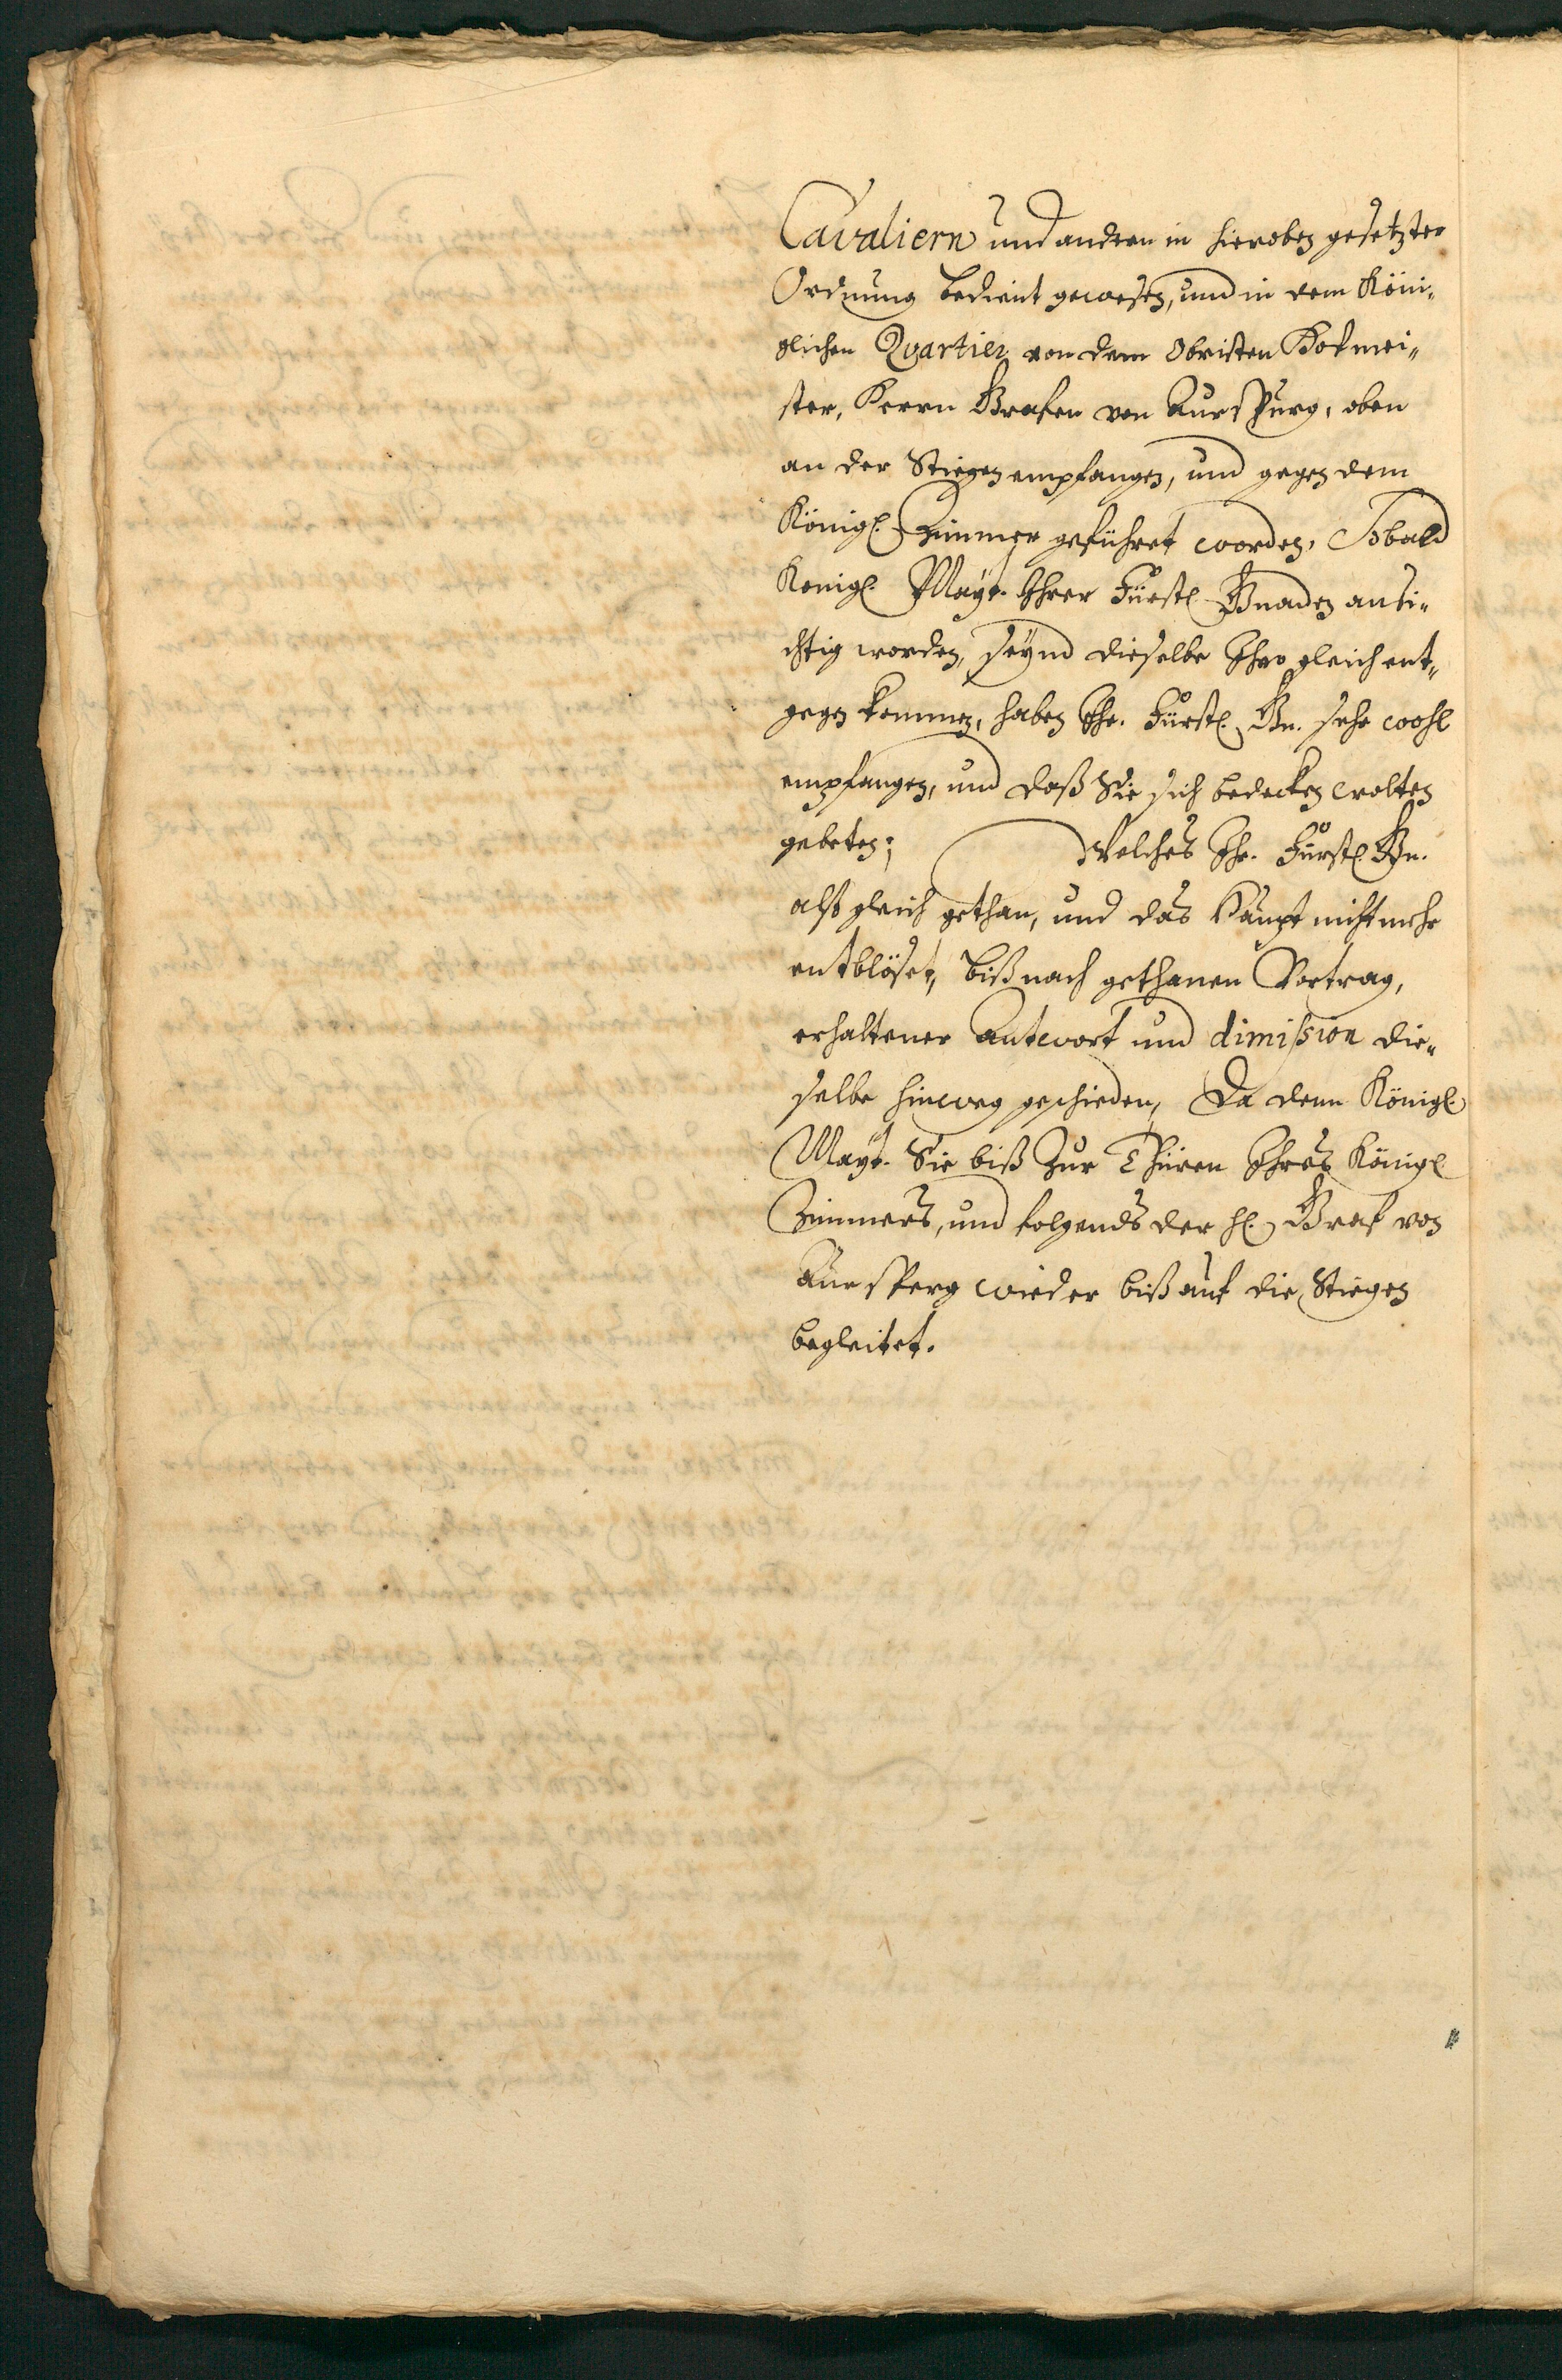 Cavaliern und andern in hieroben gesetzter
Ordnung bedient gewesen, und in dem Köni„
glichen Qvartier von dem Obristen Hofmei„
ster, Herrn Grafen von Aurspurg, oben
an der Stiegen empfangen, und gegen dem
Königl. Zimmer geführet worden, Sobald
Konigl. Mayt. Ihrer Fürstl. Gnaden ansi„
chtig worden, seynd dieselbe Ihro gleich ent„
gegen kommen, haben Ihr. Fürstl. Gn. sehr wohl
empfangen, und daß Sie sich bedecken wolten
gebeten; Welches Ihr. Fürstl. Gn.
alßogleich gethan, und das Haupt nicht mehr
entblöset, biß nach gethanen Vortrag,
erhaltener Antwort und dimißion die„
selbe hinweg geschieden, Da denn Königl.
Mayt. Sie biß zur Thüren Ihres Königl.
Zimmers, und folgends der H. Graf von
Aursperg wieder biß auf die Stiegen
begleitet.